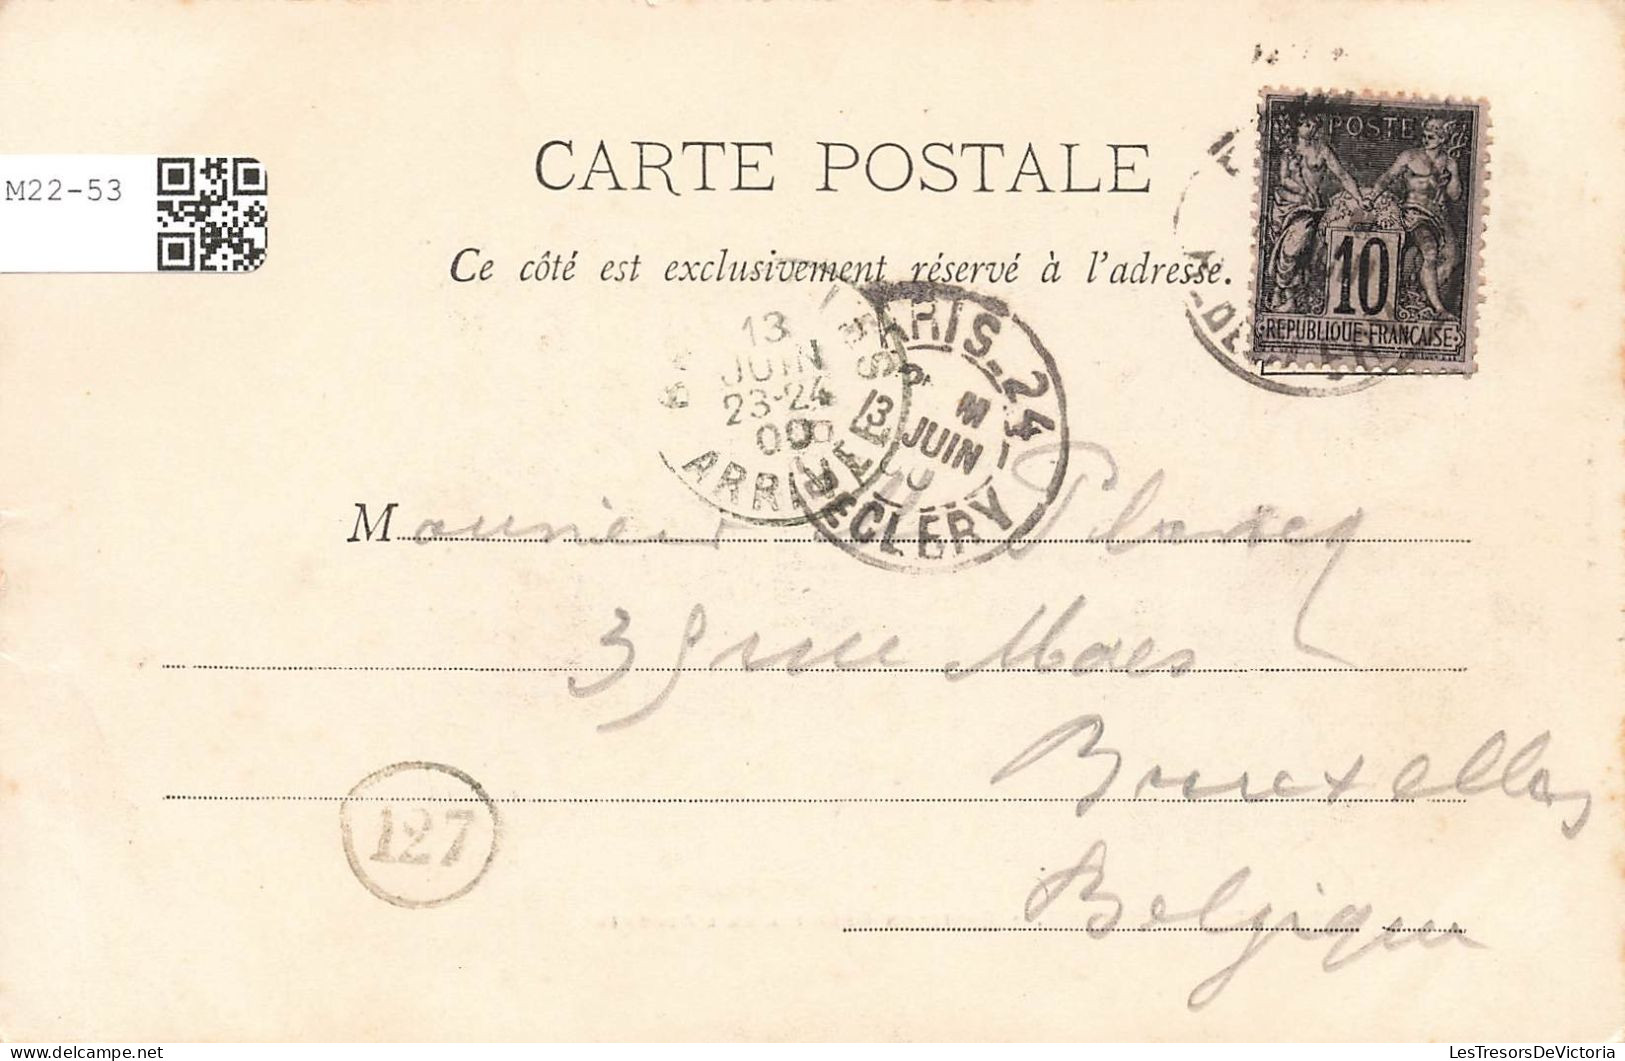 M22-53
CARTE POSTALE
Ce côté est exclusivement réservé à l'adresse.
POSTE
10
REPUBLIQUE FRANÇAISE
13
JUIN
23-24
00
ARRIVEE
PARIS-24
13
JUIN
00
R. DE CLERY
Monsieur
35 rue Maes
Bruxelles
Belgique
127
LesTresorsDeVictoria